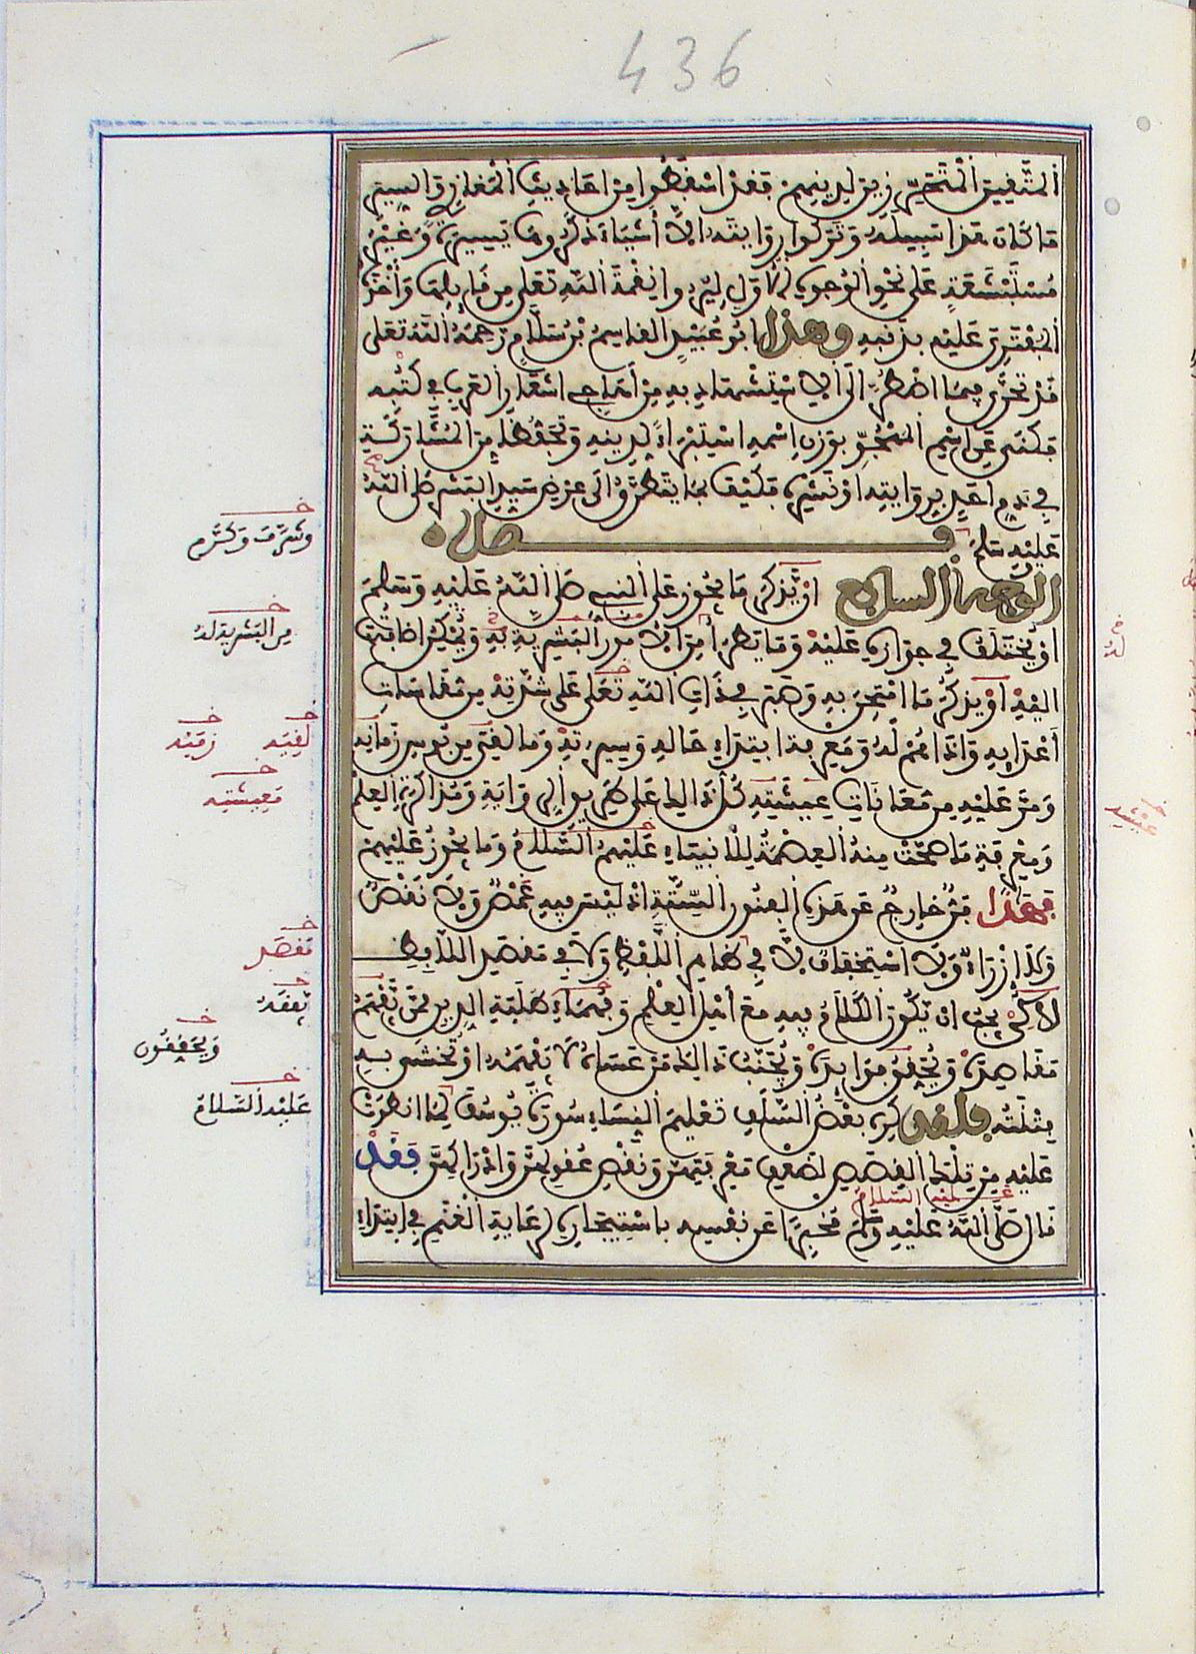 436
المتقين المتحرّزين لدينهم فقد اسقطوا من احاديث المغازي والسير
ما كان هذا سبيله وتركوا روايته الا أشياء ذكروها يسيرة وغير
مستبشعة على نحو الوجوه الاول ليروا نقمة الله تعلى من قايلها وأخذه
المفتري عليه بذنبه وهذا ابو عبيد القاسم بن سلام رحمه الله تعلى
قد تحرّى فيما اضطر الى الاستشهاد به من أهاجي اشعار العرب في كتبه
فكنى عن اسم المهجوّ بوزن اسمه استبراءً لدينه وتحفظا من المشاركة
في ذم احد بروايته او نشره فكيف بما يتطرق الى عرض سيد البشر صلى الله
عليه وسلم فصل
الوجه السابع او يذكر ما يجوز على النبي صلى الله عليه وسلم
او يختلف في جوازه عليه وما يطرأ من الامور البشرية به ويمكن اضافتها
اليه او يذكر ما امتحن به وصبر في ذات الله تعلى على شدّته من مقاسات
أعدايه واذاهم له ومعرفة ابتداء حاله وسيرته وما لقي من بوس زمانه
ومرّ عليه من معانات عيشته كل ذالك على طريق الرواية ومذاكرة العلم
ومعرفة ما صحّت منه العصمة للانبياء عليهم السلام وما يجوز عليهم
فهذا فنّ خارج عن هذه الفنون الستّة اذ ليس فيه غمص ولا نقص
ولا إزراء ولا استخفاف لا في ظاهر اللفظ ولا في مقصد اللافظ
لاكن يجب ان يكون الكلام فيه مع أهل العلم وفهماء طلبة الدين ممن يفهم
مقاصده ويحقق فوايده ويجنب ذالك من عساه لا يفهمه او يخشى به
فتنته فلقد كره بعض السلف تعليم النساء سورة يوسف لما انطوت
عليه من تلك القصص لضعف معرفتهنّ ونقص عقولهنّ وادراكهنّ فقد
قال صلى الله عليه وسلم مخبراً عن نفسه باستيجاره لرعاية الغنم في ابتداء
عليه السلام
وشرف وكرم
من البشرية له
لقيه
زمنه
معيشته
مقصد
يفقه
ويحققون
عليه السلام
له
عيشه